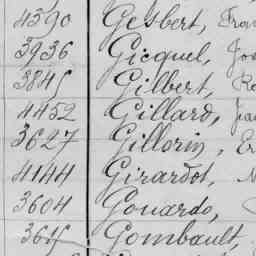 4390 Gesbert, Fra
3936 Gicquel, Jo
3845 Gilbert, Re
4452 Gillard,
3627 Gillorin, Er
4144 Girardot,
3604 Gouardo,
3615 Gombault,